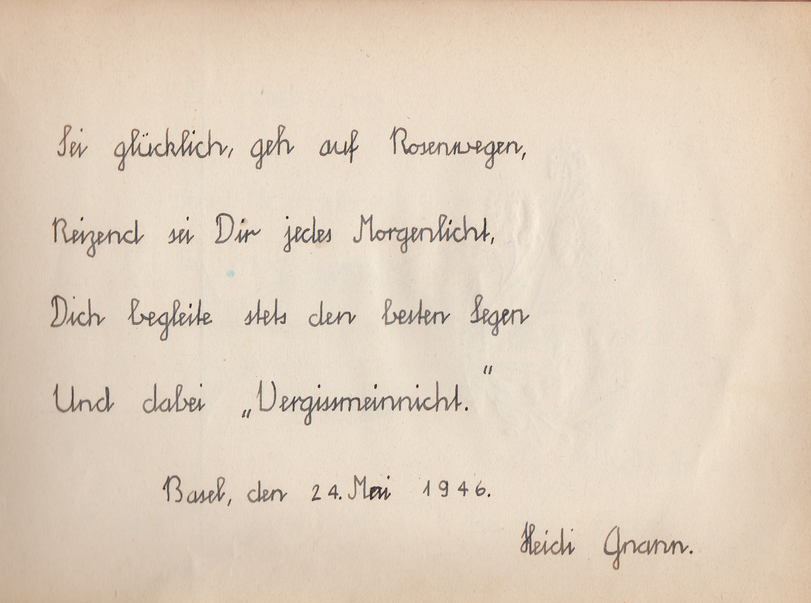 Sei glücklich, geh auf Rosenwegen,
Reizend sei Dir jedes Morgenlicht,
Dich begleite stets den besten Segen
Und dabei „Vergissmeinnicht.“
Basel, den 24. Mai 1946.
Heidi Gnann.